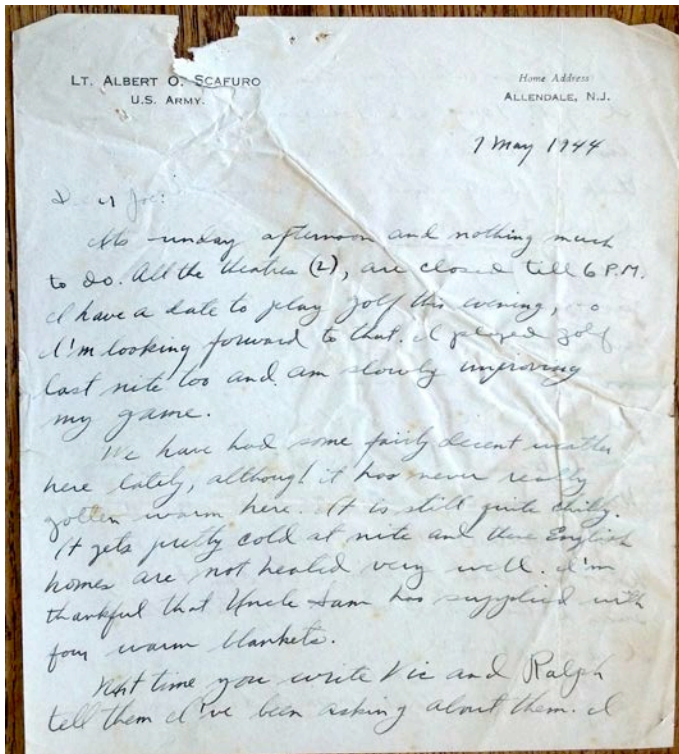 LT. ALBERT O. SCAFURO
U.S. ARMY.
Home Address
ALLENDALE, N.J.
7 May 1944
Dear Joe:
Its unday afternoon and nothing much
to do. All the theatres (2), are closed till 6 P.M.
I have a date to play golf this evening, so
I'm looking forward to that. I played golf
last nite too and am slowly improving
my game.
We have had some fairly decent weather
here lately, although it has never really
gotten warm here. It is still quite chilly.
It gets pretty cold at nite and these English
homes are not heated very well. I'm
thankful that Uncle Sam has supplied with
four warm blankets.
Next time you write Vic and Ralph
tell them I've been asking about them. I